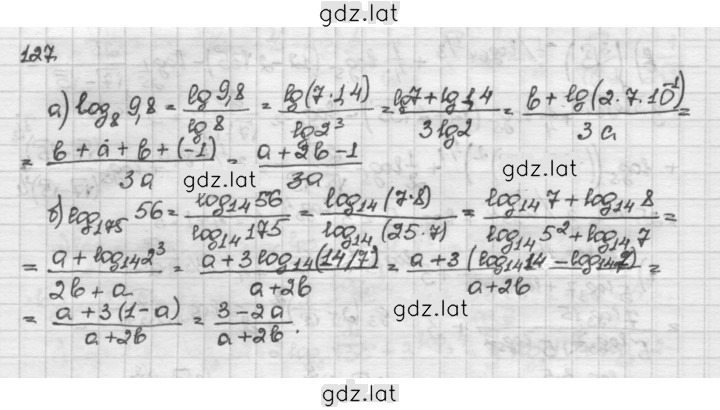 gdz.lat
127.
а) log₈ 9,8 = lg 9,8 / lg 8 = lg(7·1,4) / lg 2³ = (lg 7 + lg 1,4) / (3 lg 2) = (b + lg(2·7·10⁻¹)) / (3a) =
= (b + a + b + (-1)) / (3a) = (a + 2b - 1) / (3a)
gdz.lat
gdz.lat
б) log₁₇₅ 56 = log₁₄ 56 / log₁₄ 175 = log₁₄ (7·8) / log₁₄ (25·7) = (log₁₄ 7 + log₁₄ 8) / (log₁₄ 5² + log₁₄ 7) =
= (a + log₁₄ 2³) / (2b + a) = (a + 3 log₁₄ (14/7)) / (a + 2b) = (a + 3 (log₁₄ 14 - log₁₄ 7)) / (a + 2b) =
= (a + 3 (1 - a)) / (a + 2b) = (3 - 2a) / (a + 2b).
gdz.lat
gdz.lat